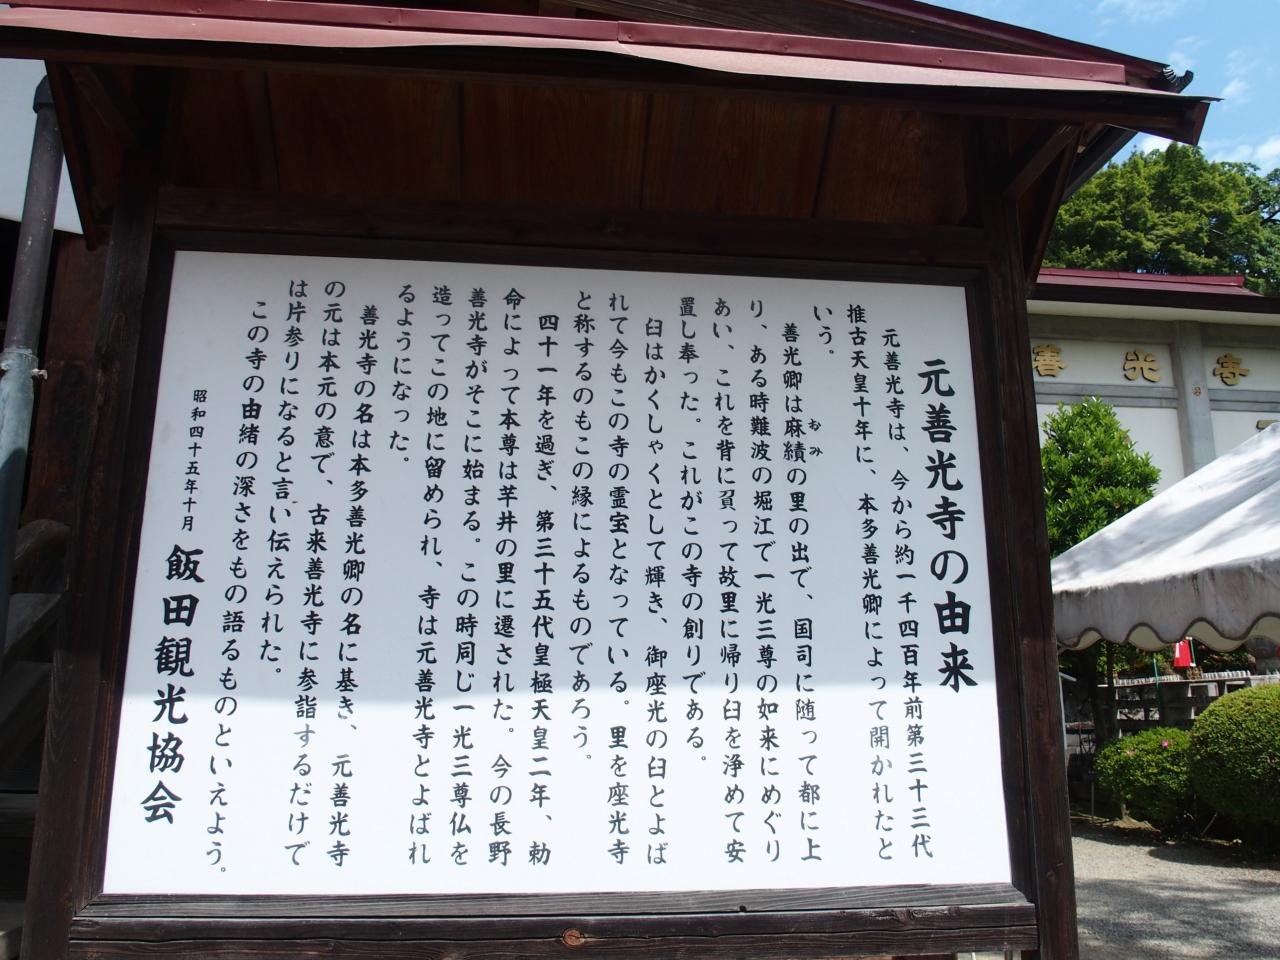 元善光寺の由来
元善光寺は、今から約一千四百年前第三十三代
推古天皇十年に、本多善光卿によって開かれたと
いう。
善光卿は麻績の里の出で、国司に随って都に上
おみ
り、ある時難波の堀江で一光三尊の如来にめぐり
あい、これを背に負って故里に帰り臼を浄めて安
置し奉った。これがこの寺の創りである。
臼はかくしゃくとして輝き、御座光の臼とよば
れて今もこの寺の霊宝となっている。里を座光寺
と称するのもこの縁によるものであろう。
四十一年を過ぎ、第三十五代皇極天皇二年、勅
命によって本尊は芋井の里に遷された。今の長野
善光寺がそこに始まる。この時同じ一光三尊仏を
造ってこの地に留められ、寺は元善光寺とよばれ
るようになった。
善光寺の名は本多善光卿の名に基き、元善光寺
の元は本元の意で、古来善光寺に参詣するだけで
は片参りになると言い伝えられた。
この寺の由緒の深さをもの語るものといえよう。
昭和四十五年十月
飯田観光協会
善光寺